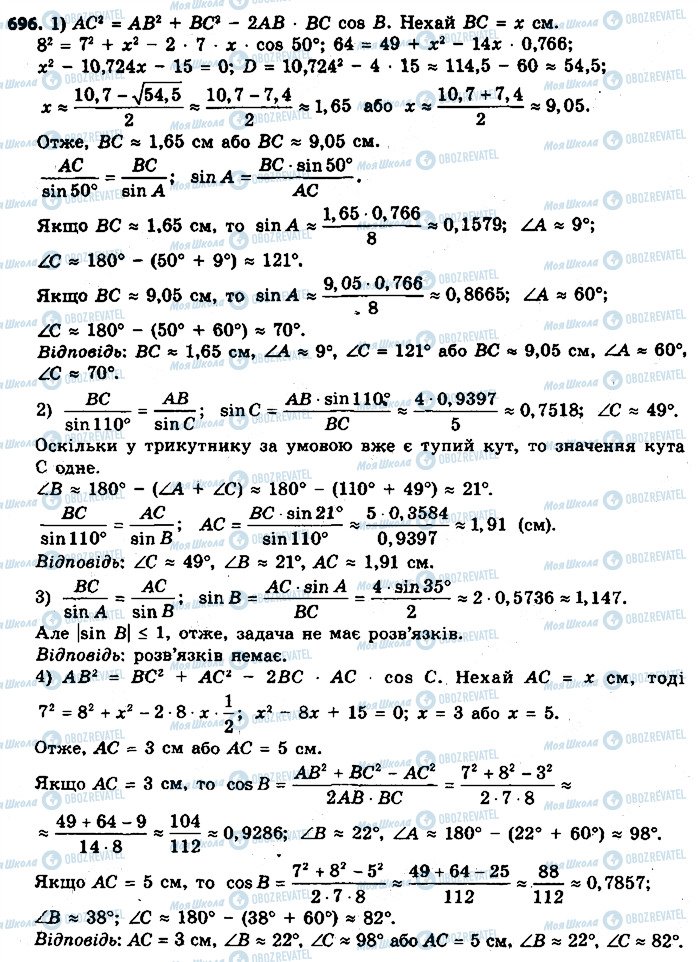 696. 1) AC² = AB² + BC² - 2AB · BC cos B. Нехай BC = x см.
8² = 7² + x² - 2 · 7 · x · cos 50°; 64 = 49 + x² - 14x · 0,766;
x² - 10,724x - 15 = 0; D = 10,724² - 4 · 15 ≈ 114,5 - 60 ≈ 54,5;
x ≈ (10,7 - √54,5)/2 ≈ (10,7 - 7,4)/2 ≈ 1,65 або x ≈ (10,7 + 7,4)/2 ≈ 9,05.
Отже, BC ≈ 1,65 см або BC ≈ 9,05 см.
AC/sin 50° = BC/sin A; sin A = BC · sin 50°/AC.
Якщо BC ≈ 1,65 см, то sin A ≈ 1,65 · 0,766/8 ≈ 0,1579; ∠A ≈ 9°;
∠C ≈ 180° - (50° + 9°) ≈ 121°.
Якщо BC ≈ 9,05 см, то sin A ≈ 9,05 · 0,766/8 ≈ 0,8665; ∠A ≈ 60°;
∠C ≈ 180° - (50° + 60°) ≈ 70°.
Відповідь: BC ≈ 1,65 см, ∠A ≈ 9°, ∠C = 121° або BC ≈ 9,05 см, ∠A ≈ 60°,
∠C ≈ 70°.
2) BC/sin 110° = AB/sin C; sin C = AB · sin 110°/BC ≈ 4 · 0,9397/5 ≈ 0,7518; ∠C ≈ 49°.
Оскільки у трикутнику за умовою вже є тупий кут, то значення кута
C одне.
∠B ≈ 180° - (∠A + ∠C) ≈ 180° - (110° + 49°) ≈ 21°.
BC/sin 110° = AC/sin B; AC = BC · sin 21°/sin 110° ≈ 5 · 0,3584/0,9397 ≈ 1,91 (см).
Відповідь: ∠C ≈ 49°, ∠B ≈ 21°, AC ≈ 1,91 см.
3) BC/sin A = AC/sin B; sin B = AC · sin A/BC = 4 · sin 35°/2 ≈ 2 · 0,5736 ≈ 1,147.
Але |sin B| ≤ 1, отже, задача не має розв'язків.
Відповідь: розв'язків немає.
4) AB² = BC² + AC² - 2BC · AC · cos C. Нехай AC = x см, тоді
7² = 8² + x² - 2 · 8 · x · 1/2; x² - 8x + 15 = 0; x = 3 або x = 5.
Отже, AC = 3 см або AC = 5 см.
Якщо AC = 3 см, то cos B = (AB² + BC² - AC²)/(2AB · BC) = (7² + 8² - 3²)/(2 · 7 · 8) ≈
≈ (49 + 64 - 9)/(14 · 8) ≈ 104/112 ≈ 0,9286; ∠B ≈ 22°, ∠A ≈ 180° - (22° + 60°) ≈ 98°.
Якщо AC = 5 см, то cos B = (7² + 8² - 5²)/(2 · 7 · 8) ≈ (49 + 64 - 25)/112 ≈ 88/112 ≈ 0,7857;
∠B ≈ 38°; ∠C ≈ 180° - (38° + 60°) ≈ 82°.
Відповідь: AC = 3 см, ∠B ≈ 22°, ∠C ≈ 98° або AC = 5 см, ∠B ≈ 22°, ∠C ≈ 82°.